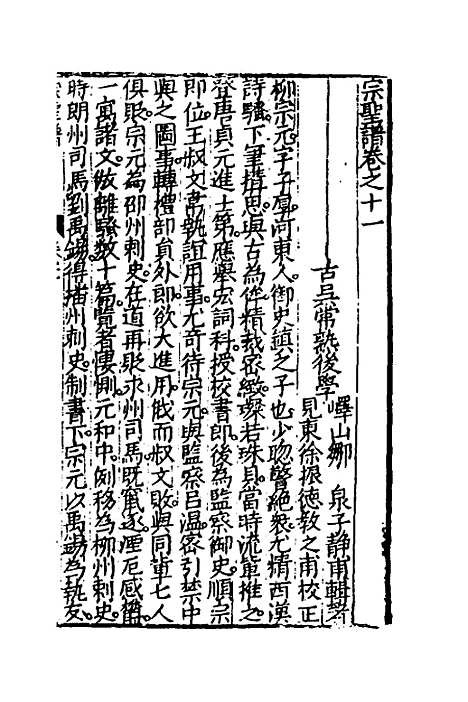 宗聖譜卷之十一
嶧山鄒　泉子静甫輯著
古吳常熟後學
見東徐振德敎之甫校正
柳宗元字子厚河東人御史鎮之子也少聰警絶衆尤精西漢
詩騷下筆搆思與古為侔精裁密緻璨若珠貝當時流輩推之
登唐貞元進士第應舉宏詞科授校書郎後為監察御史順宗
即位王叔文韋執誼用事尤奇待宗元與監察呂温密引禁中
與之圖事轉禮部員外郎欲大進用俄而叔文敗與同軰七人
俱貶宗元為邵州刺史在道再貶永州司馬既竄逐湮厄感欝
一寓諸文倣離騷數十篇覽者悽惻元和中例移為柳州刺史
時朗州司馬劉禹錫得播州刺史制書下宗元以禹錫為執友